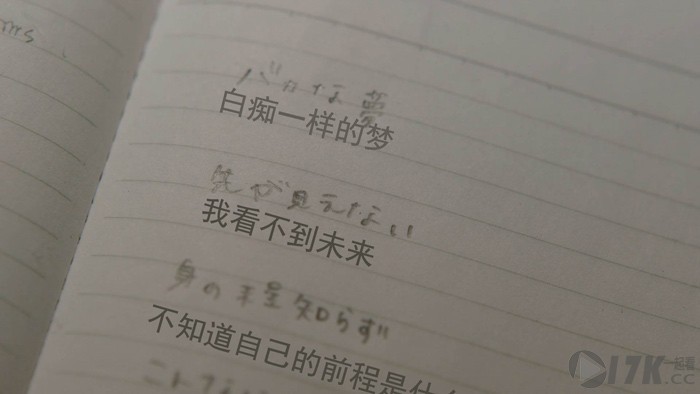 バカな夢
白痴一样的梦
先が見えない
我看不到未来
身の程知らず
不知道自己的前程是什
17K
一起看
.CC